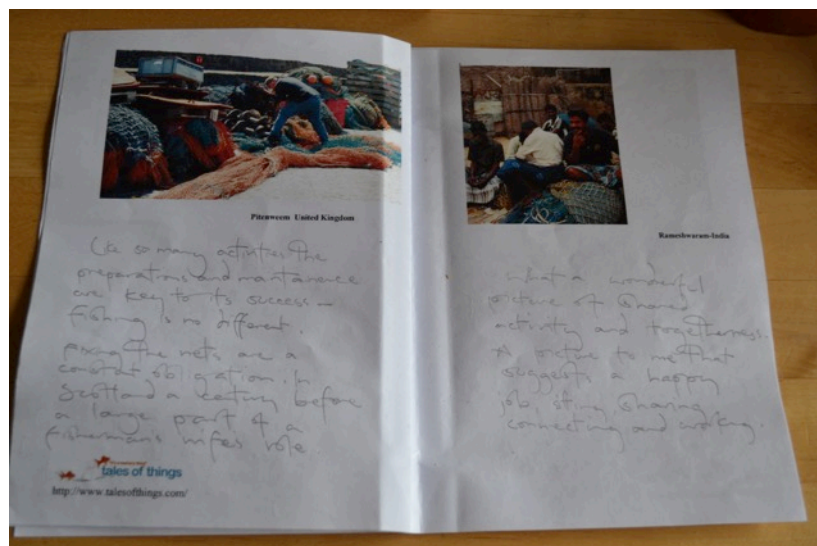 Pittenweem United Kingdom
Like so many activities the
preparations and maintainence
are key to its success –
fishing is no different.
Fixing the nets are a
constant obligation. In
Scotland a century before
a large part of a
fisherman's wifes role
tales of things
http://www.talesofthings.com/
Rameshwaram-India
What a wonderful
picture of shared
activity and togetherness.
A picture to me that
suggests a happy
job, sitting sharing
connecting and working.